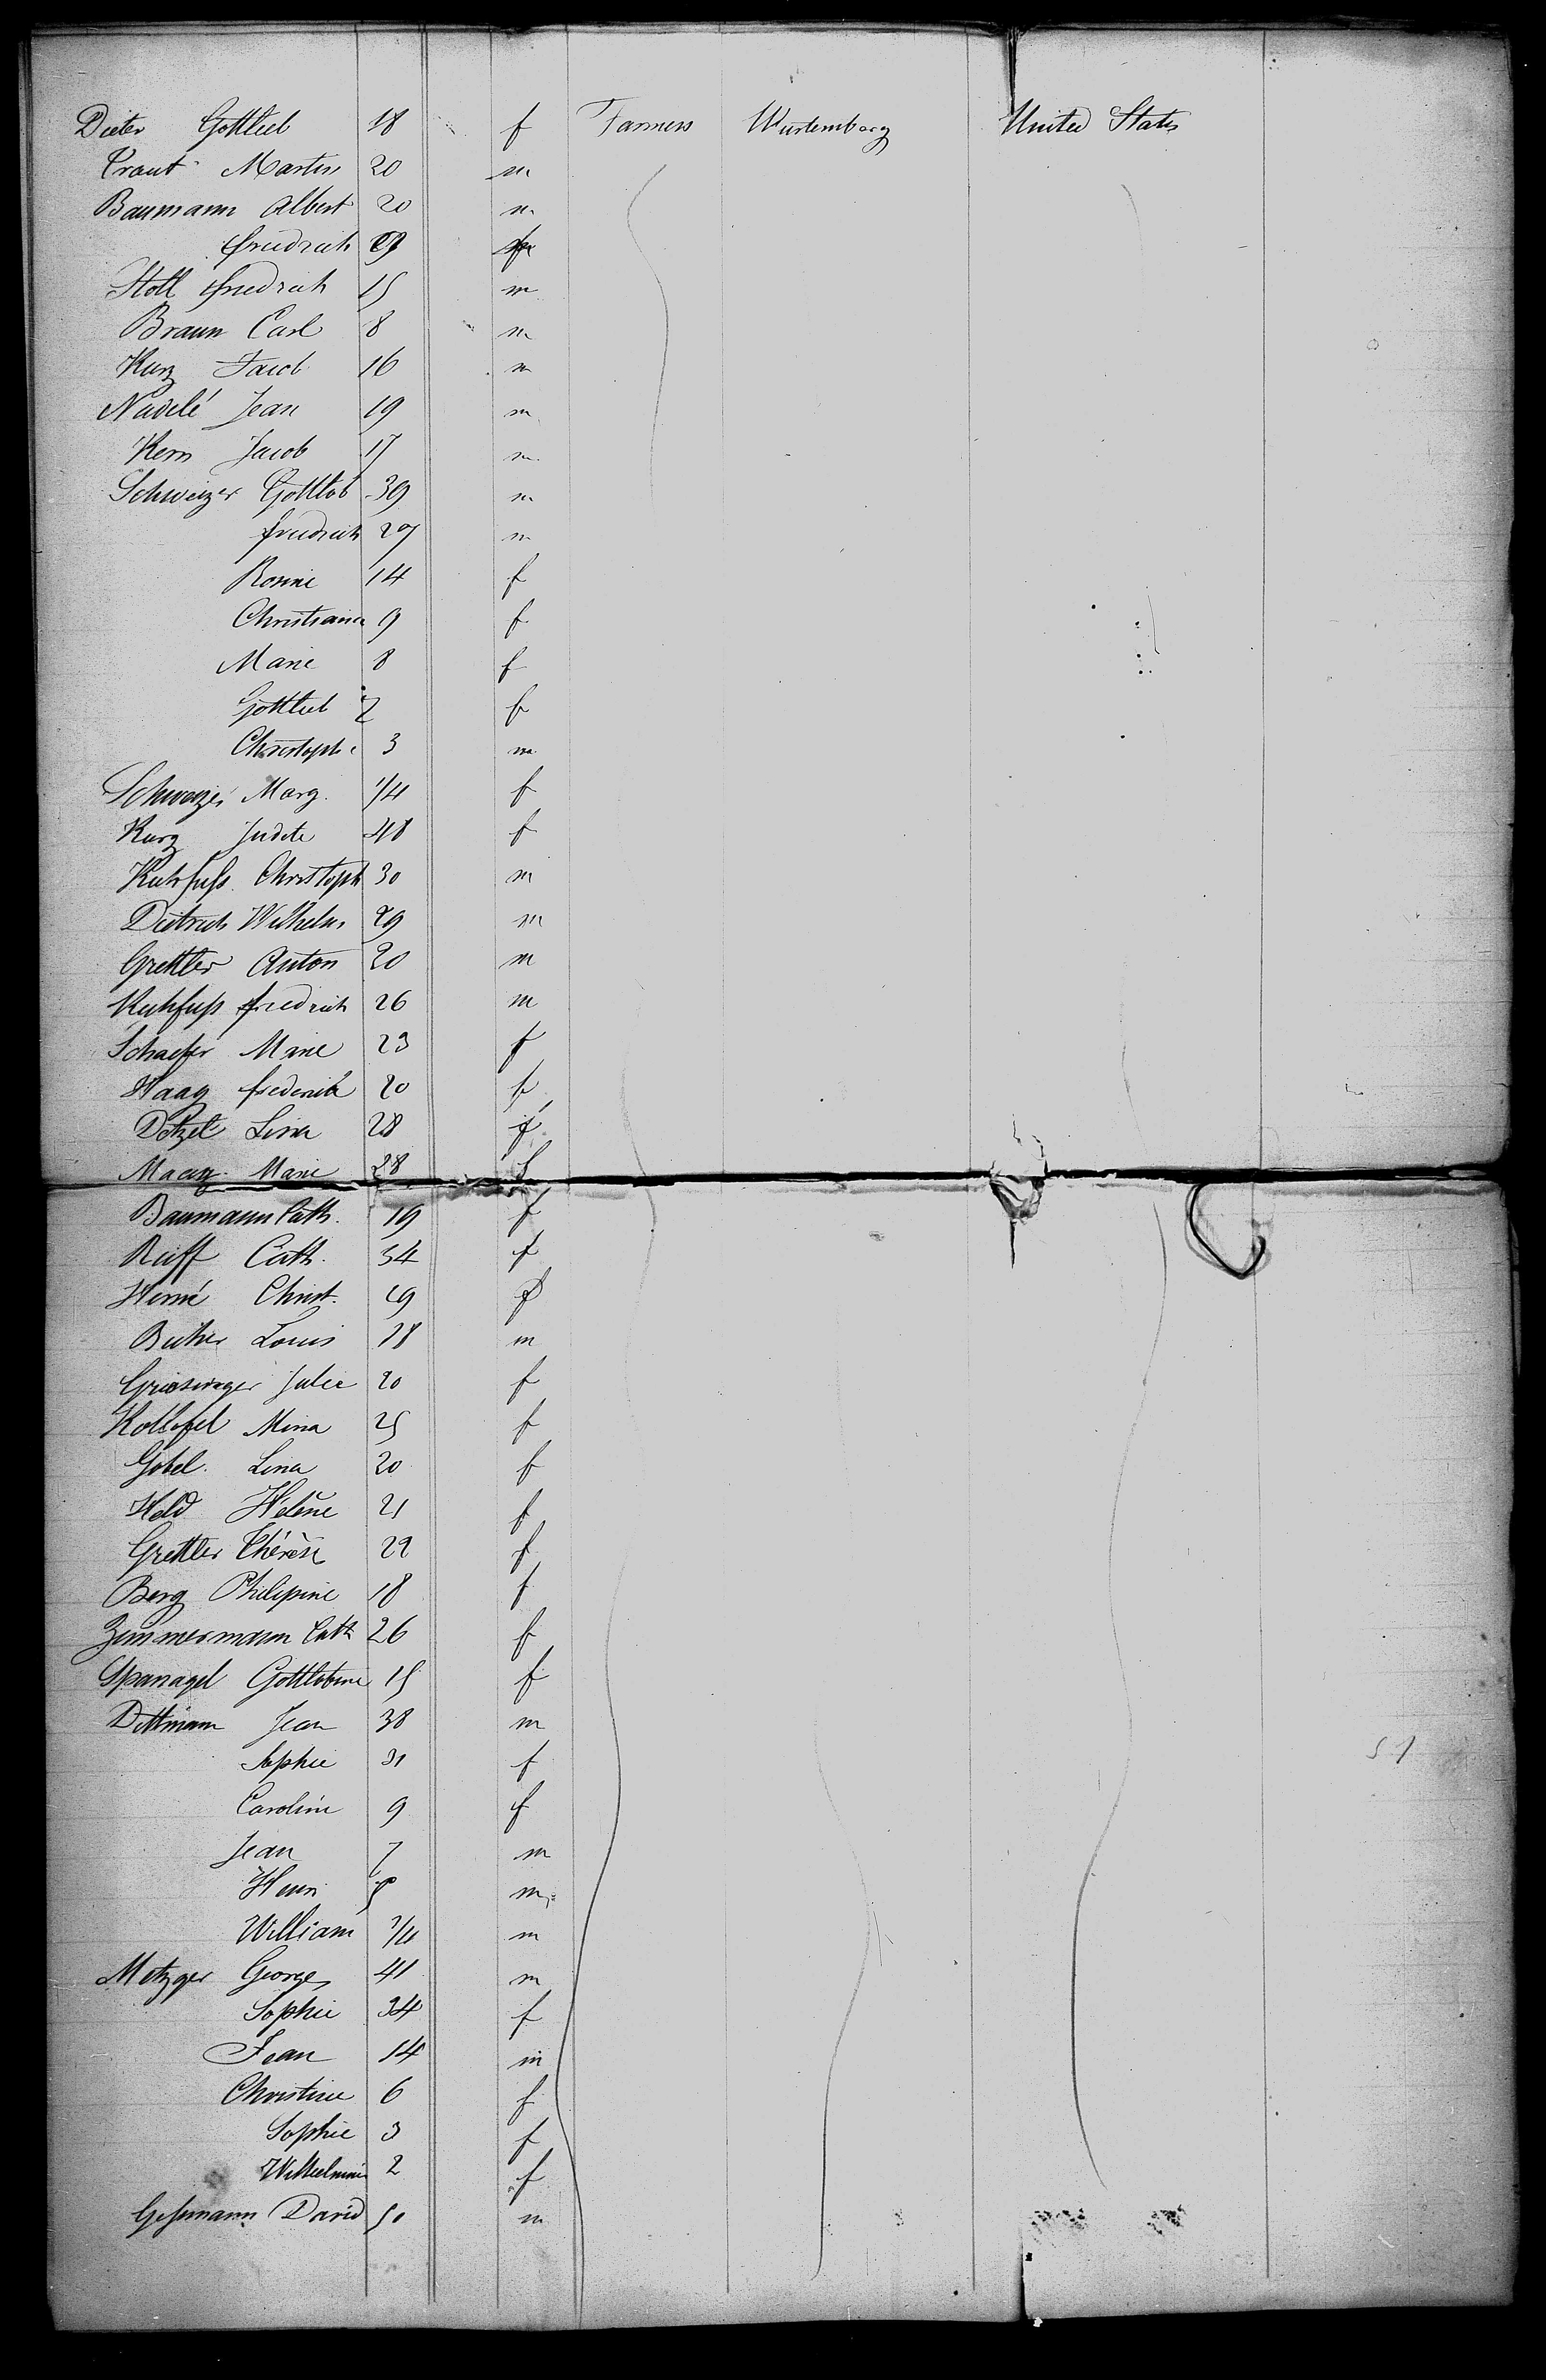 Dieter Gottlieb 18 f Farmers Wurtemberg United States
Traut Martin 20 m
Baumann Albert 20 m
friedrich 29
Stoll friedrich 15 m
Braun Carl 8 m
Kurz Jacob 16 m
Nädelé Jean 19 m
Kern Jacob 17 m
Schweizer Gottlob 39 m
friedrich 27 m
Rosine 14 f
Christiane 9 f
Marie 8 f
Gottlieb 7 f
Christophe 3 m
Schweizer Marg. 1/4 f
Kurz Judite 48 f
Kuhfuss Christoph 30 m
Dietrich Wilhelm 29 m
Grettler Anton 20 m
Kuhfuss friedrich 26 m
Schaefer Marie 23 f
Haag frederika 20 f
Detzel Lina 28 f
Maag Marie 28 f
Baumann Cath. 19 f
Reiff Cath. 34 f
Christ. 19 f
Louis 18 m
Griesinger Julie 20 f
Mina 25 f
Gobel. Lina 20 f
Held Helène 21 f
Grettler Thérèse 22 f
Berg Philipine 18 f
Zimmermann Cath 26 f
Spanagel Gottlobine 15 f
Dittmann Jean 38 m
Sophie 31 f
Caroline 9 f
Jean 7 m
Henri 5 m
William 3/4 m
Metzger George 41 m
Sophie 34 f
Jean 14 m
Christine 6 f
Sophie 3 f
Wilhelmine 2 f
Gessmann David 50 m
51